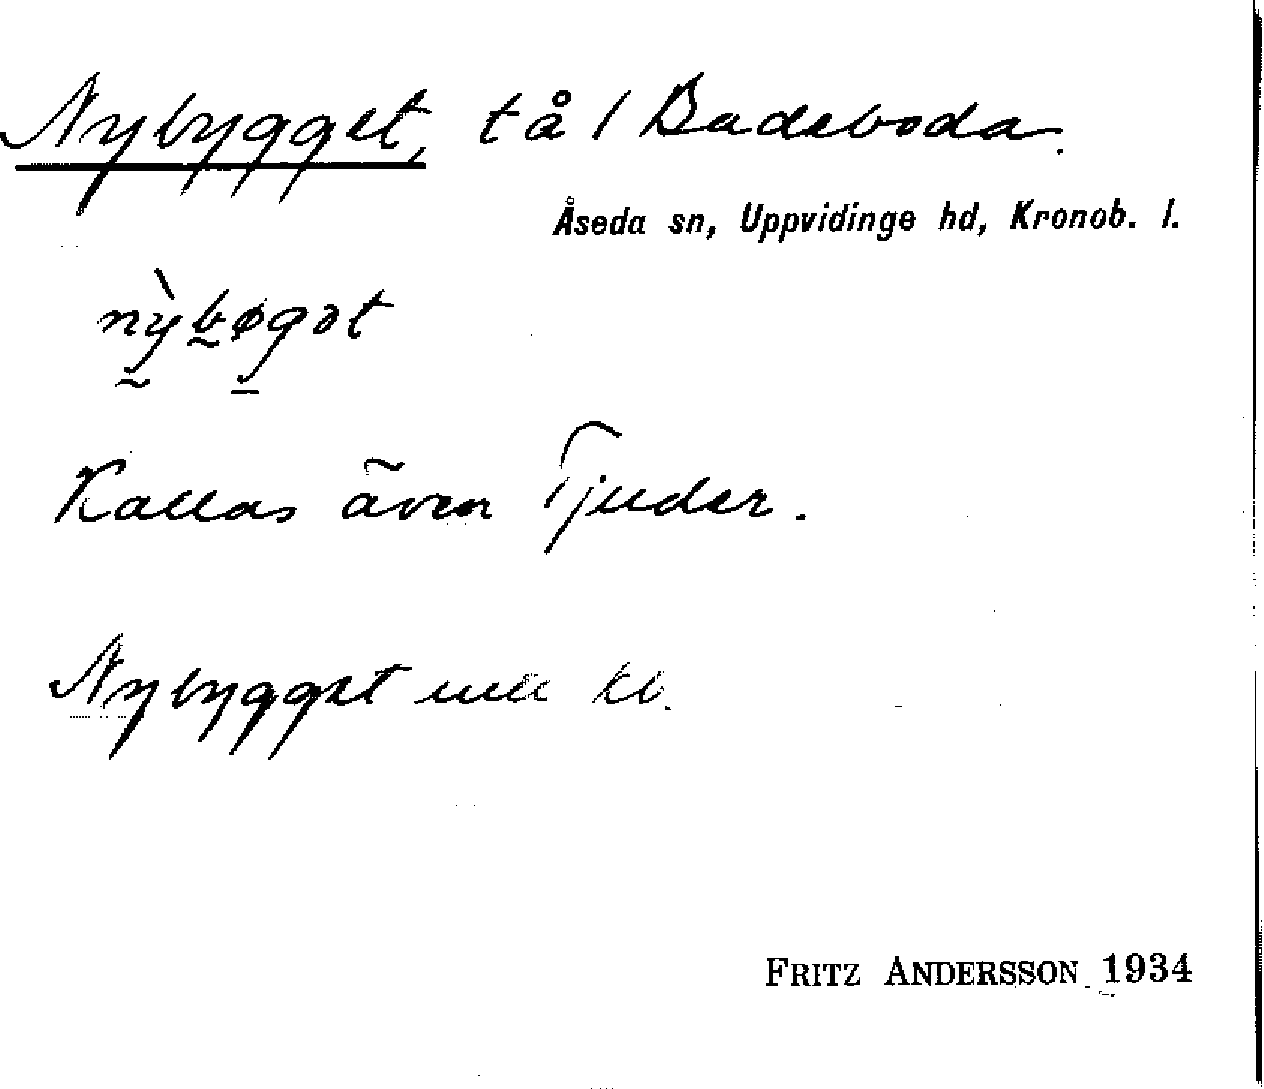 Nybygget, tå / Badeboda.
Åseda sn, Uppvidinge hd, Kronob. l.
nỳbøgət
Kallas även Tjuder.
Nybygget
FRITZ ANDERSSON 1934